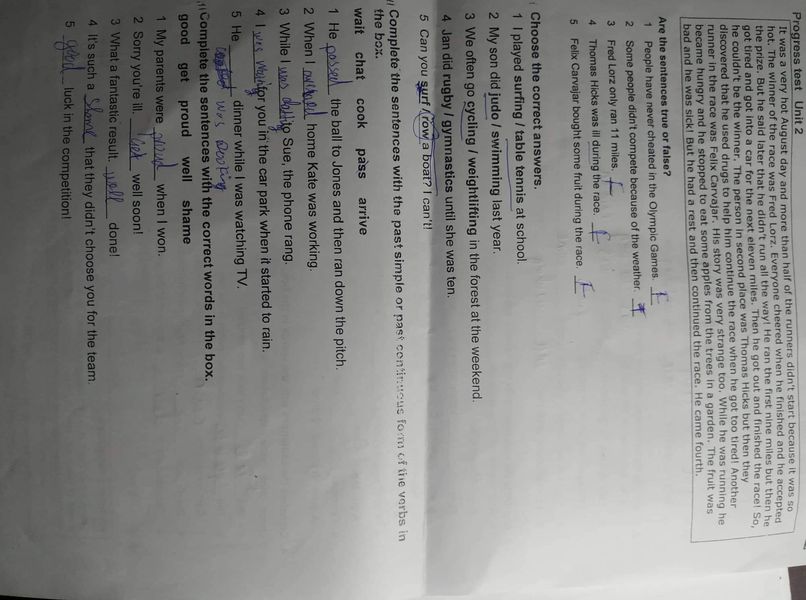 Progress test Unit 2
It was a very hot August day and more than half of the runners didn't start because it was so
hot. The winner of the race was Fred Lorz. Everyone cheered when he finished and he accepted
the prize. But he said later that he didn't run all the way! He ran the first nine miles but then he
got tired and got into a car for the next eleven miles. Then he got out and finished the race! So,
he couldn't be the winner. The person in second place was Thomas Hicks but then they
discovered that he used drugs to help him continue the race when he got too tired! Another
runner in the race was Felix Carvajar. His story was very strange too. While he was running he
became hungry and he stopped to eat some apples from the trees in a garden. The fruit was
bad and he was sick! But he had a rest and then continued the race. He came fourth.
Are the sentences true of false?
1 People have never cheated in the Olympic Games. F
2 Some people didn't compete because of the weather.
3 Fred Lorz only ran 11 miles. F
4 Thomas Hicks was ill during the race. F
5 Felix Carvajar bought some fruit during the race. F
Choose the correct answers.
1 I played surfing / table tennis at school.
2 My son did judo / swimming last year.
3 We often go cycling / weightlifting in the forest at the weekend.
4 Jan did rugby / gymnastics until she was ten.
5 Can you surf / row a boat? I can't!
Complete the sentences with the past simple or past continuous form of the verbs in
the box.
wait chat cook pass arrive
1 He passed the ball to Jones and then ran down the pitch.
2 When I home Kate was working.
3 While I was to Sue, the phone rang.
4 I was for you in the car park when it started to rain.
5 He dinner while I was watching TV.
was cooking
Complete the sentences with the correct words in the box.
good get proud well shame
1 My parents were proud when I won.
2 Sorry you're ill. Get well soon!
3 What a fantastic result. well done!
4 It's such a shame that they didn't choose you for the team.
5 good luck in the competition!